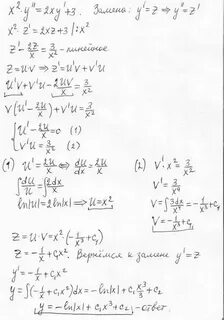 x²·y''=2xy'+3. Замена: y'=z ⇒ y''=z'
x²·z'=2xz+3 |:x²
z'-2z/x=3/x² - линейное
z=u·v ⇒ z'=u'v+v'u
u'v+v'u-2uv/x=3/x²
v(u'-2u/x)+v'u=3/x²
{u'-2u/x=0 (1)
{v'u=3/x² (2)
(1) u'=2u/x ⇔ du/dx=2u/x
∫du/u=∫2dx/x
ln|u|=2ln|x| ⇒ u=x²
(2) v'·x²=3/x²
v'=3/x⁴
v=∫3dx/x⁴=-1/x³+c₁
v=-1/x³+c₁
z=u·v=x²·(-1/x³+c₁)
z=-1/x+c₁x². Вернёмся к замене y'=z
y'=-1/x+c₁x²
y=∫(-1/x+c₁x²)dx=-ln|x|+c₁x³/3+c₂
y=-ln|x|+c₁x³+c₂ - ответ.